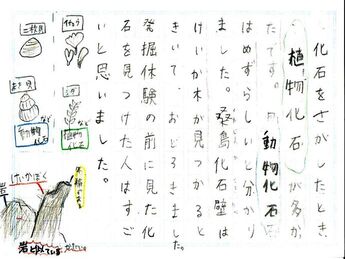 化石をさがしたとき、
植物化石が多か
たです。動物化石
はめずらしいと分かり
ました。怪島化石壁は
けいか木が見つかると
きいて、おどろきました。
発掘体験の前に見た化
石を見つけた人はすご
いと思いました。
二枚貝
まき貝
など
動物
化石
イチョウ
など
植物
化石
年輪がある
けいかぼく
岩
岩と似ている